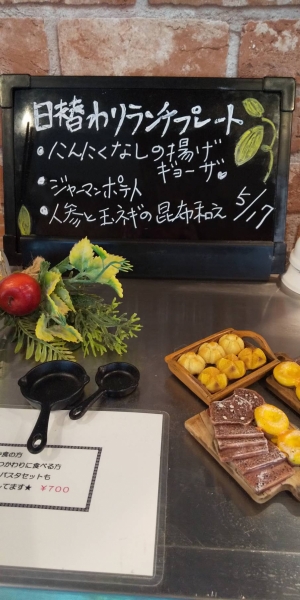 日替わりランチプレート
・にんにくなしの揚げ
ギョーザ♥
・ジャーマンポテト
・人参と玉ネギの昆布和え
5/17
食の方
つかわりに食べる方
パスタセットも
してます★ ¥700